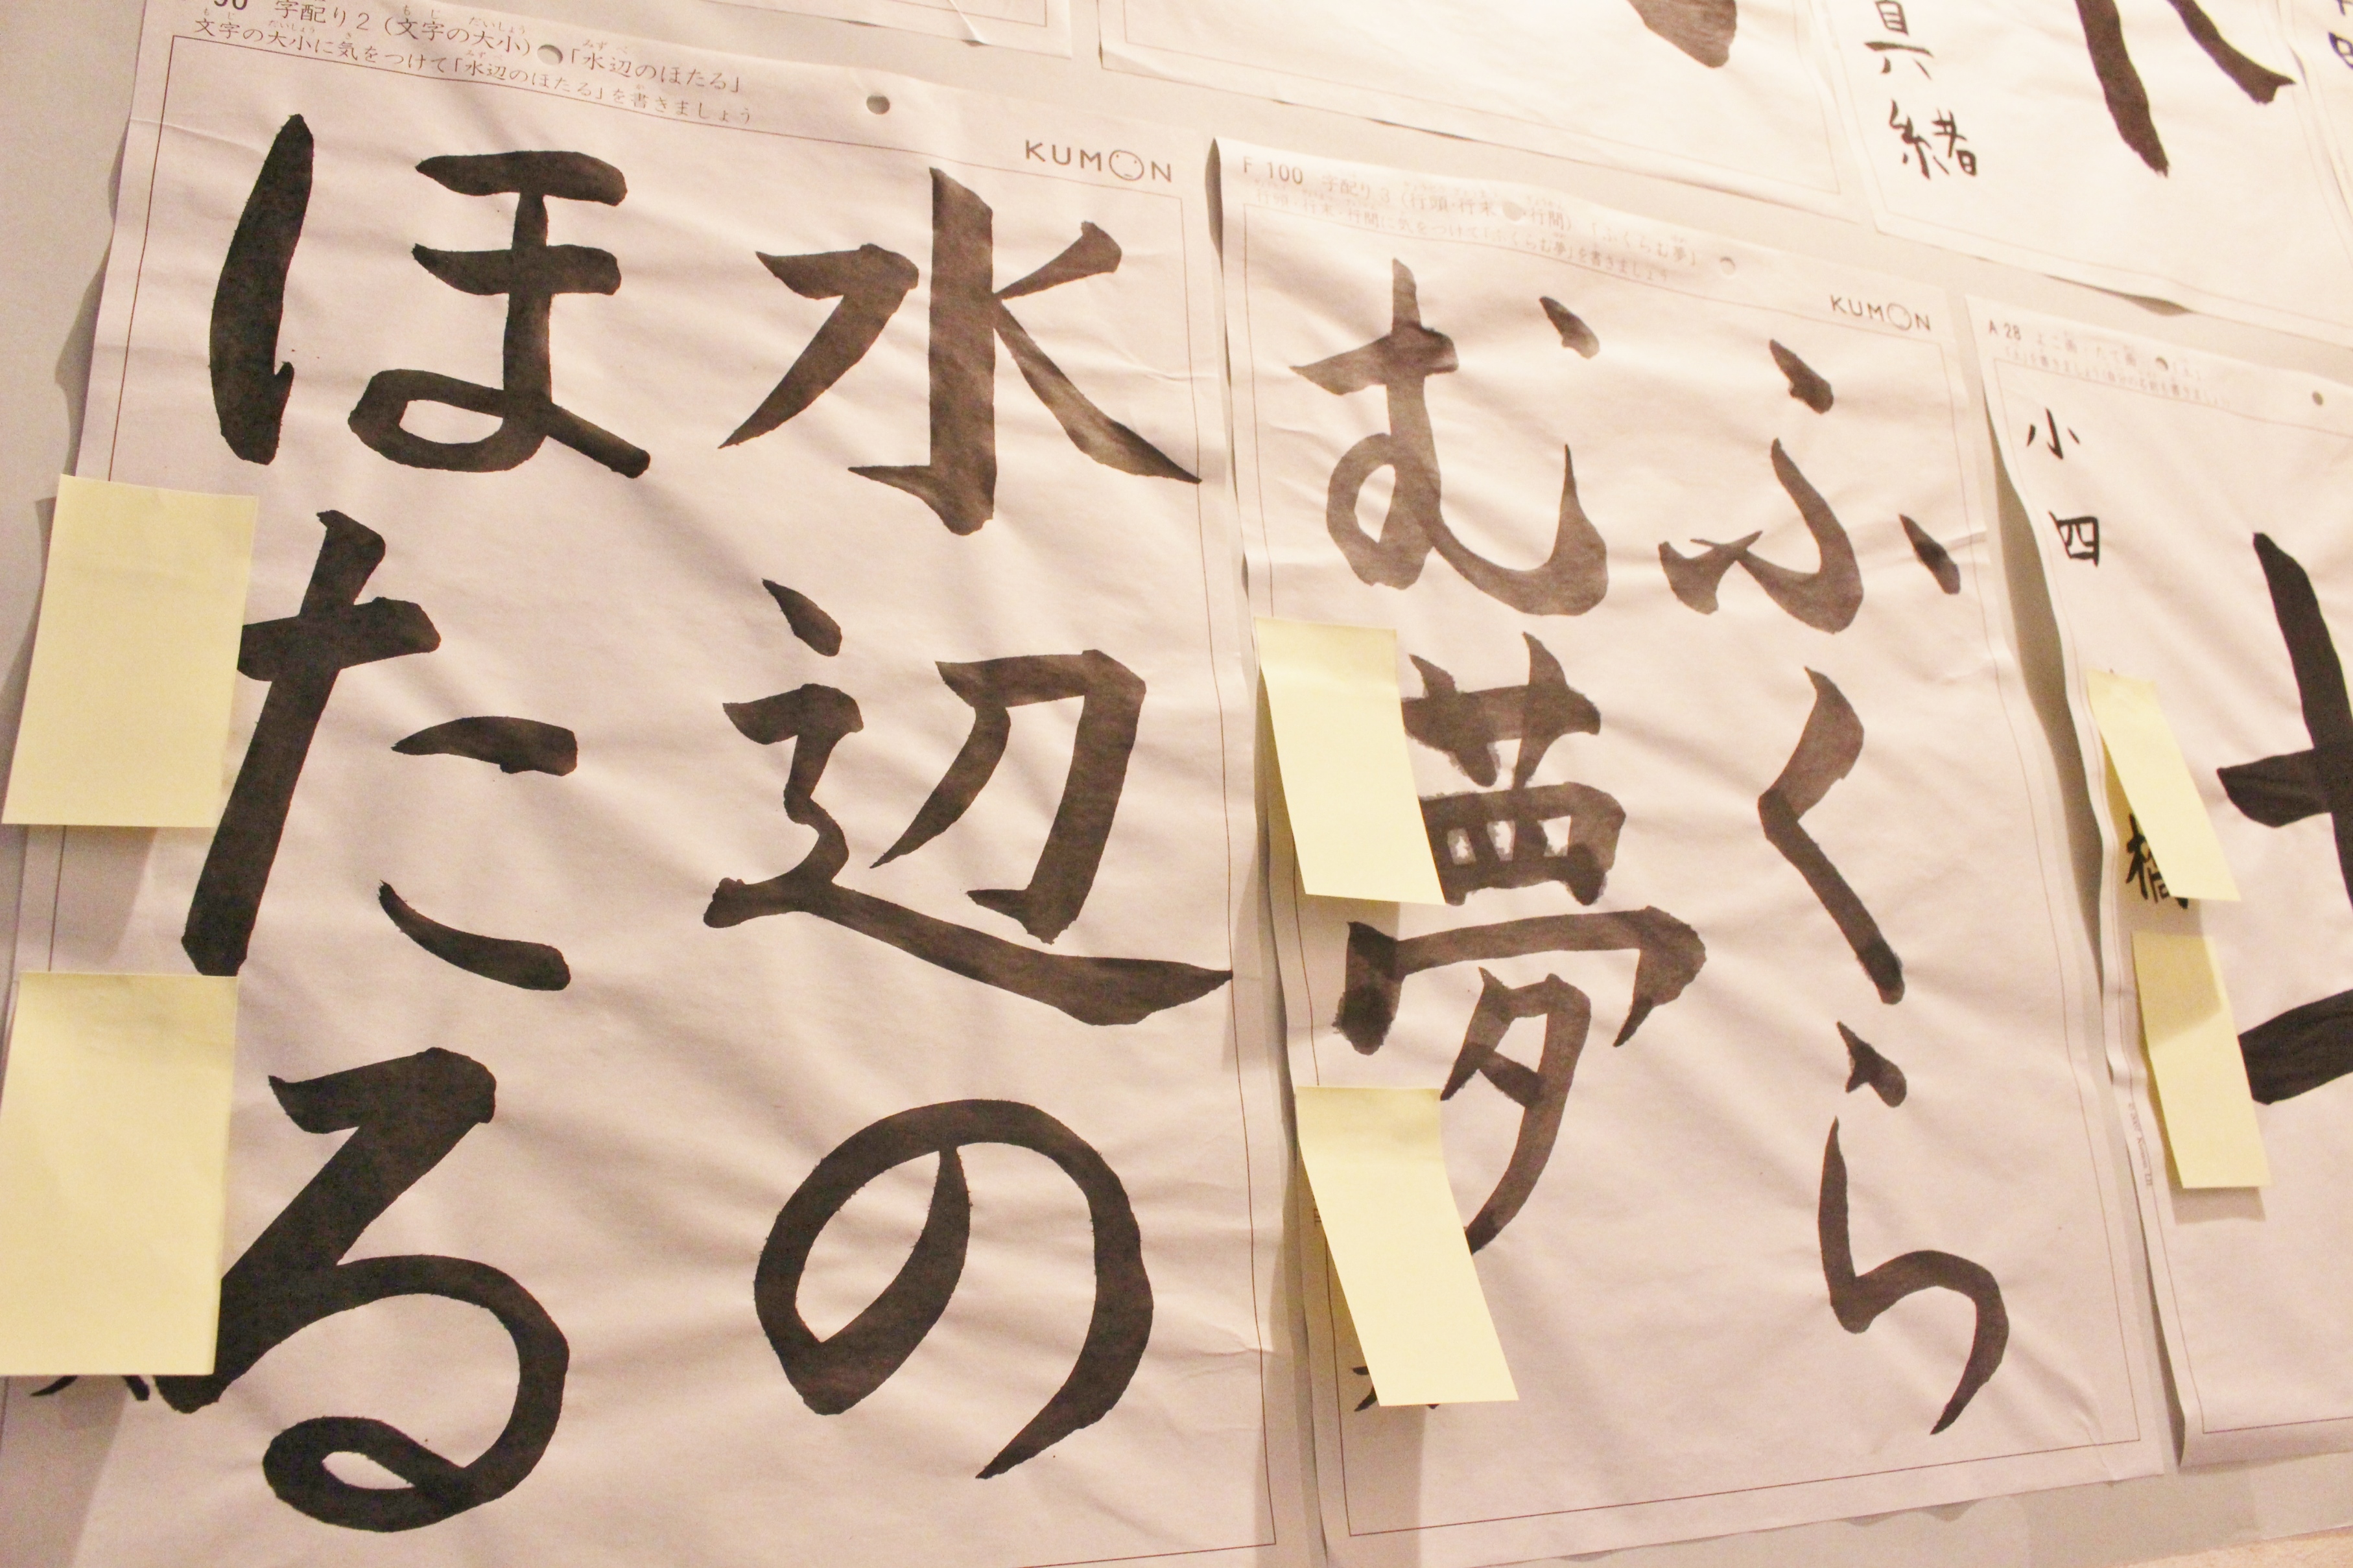 字配り2（文字の大小）●「水辺のほたる」
文字の大小に気をつけて「水辺のほたる」を書きましょう
KUMON
水辺の
ほたる
F 100 字配り3（行頭・行末●行間）「ふくらむ夢」
行頭・行末・行間に気をつけて「ふくらむ夢」を書きましょう
KUMON
ふくら
む夢
A 28
小四